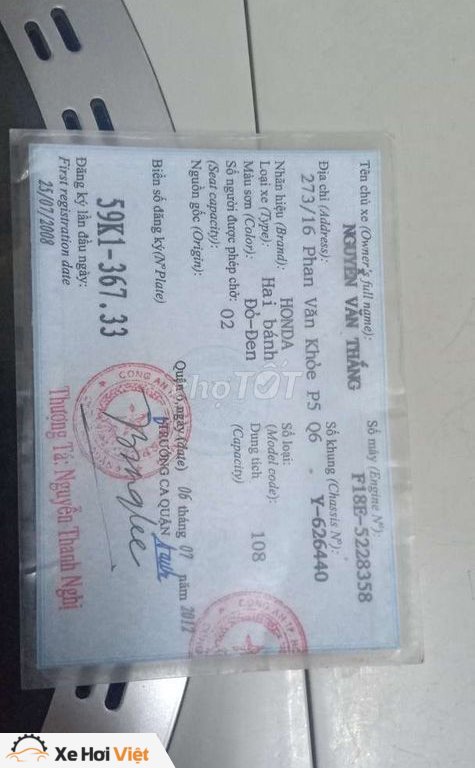 Tên chủ xe (Owner's full name):
NGUYỄN VĂN THẮNG
Số máy (Engine Nº):
F18E-5228358
Địa chỉ (Address):
273/16 Phan Văn Khỏe P5 Q6
Số khung (Chassis Nº):
Y-626440
Nhãn hiệu (Brand): HONDA
Số loại:
(Model code):
Loại xe (Type): Hai bánh
Màu sơn (Color): Đỏ-Đen
Dung tích 108
(Capacity)
Số người được phép chở: 02
(Seat capacity):
Nguồn gốc (Origin):
Quận 6 ngày (date) 06 tháng 07 năm 2012
TRƯỞNG CA QUẬN
CÔNG AN
CÔNG AN
Biển số đăng ký (NºPlate)
59K1-367.33
Thượng Tá: Nguyễn Thanh Nghị
Đăng ký lần đầu ngày:
First registration date
25/07/2008
Chợ TỐT
Xe Hơi Việt